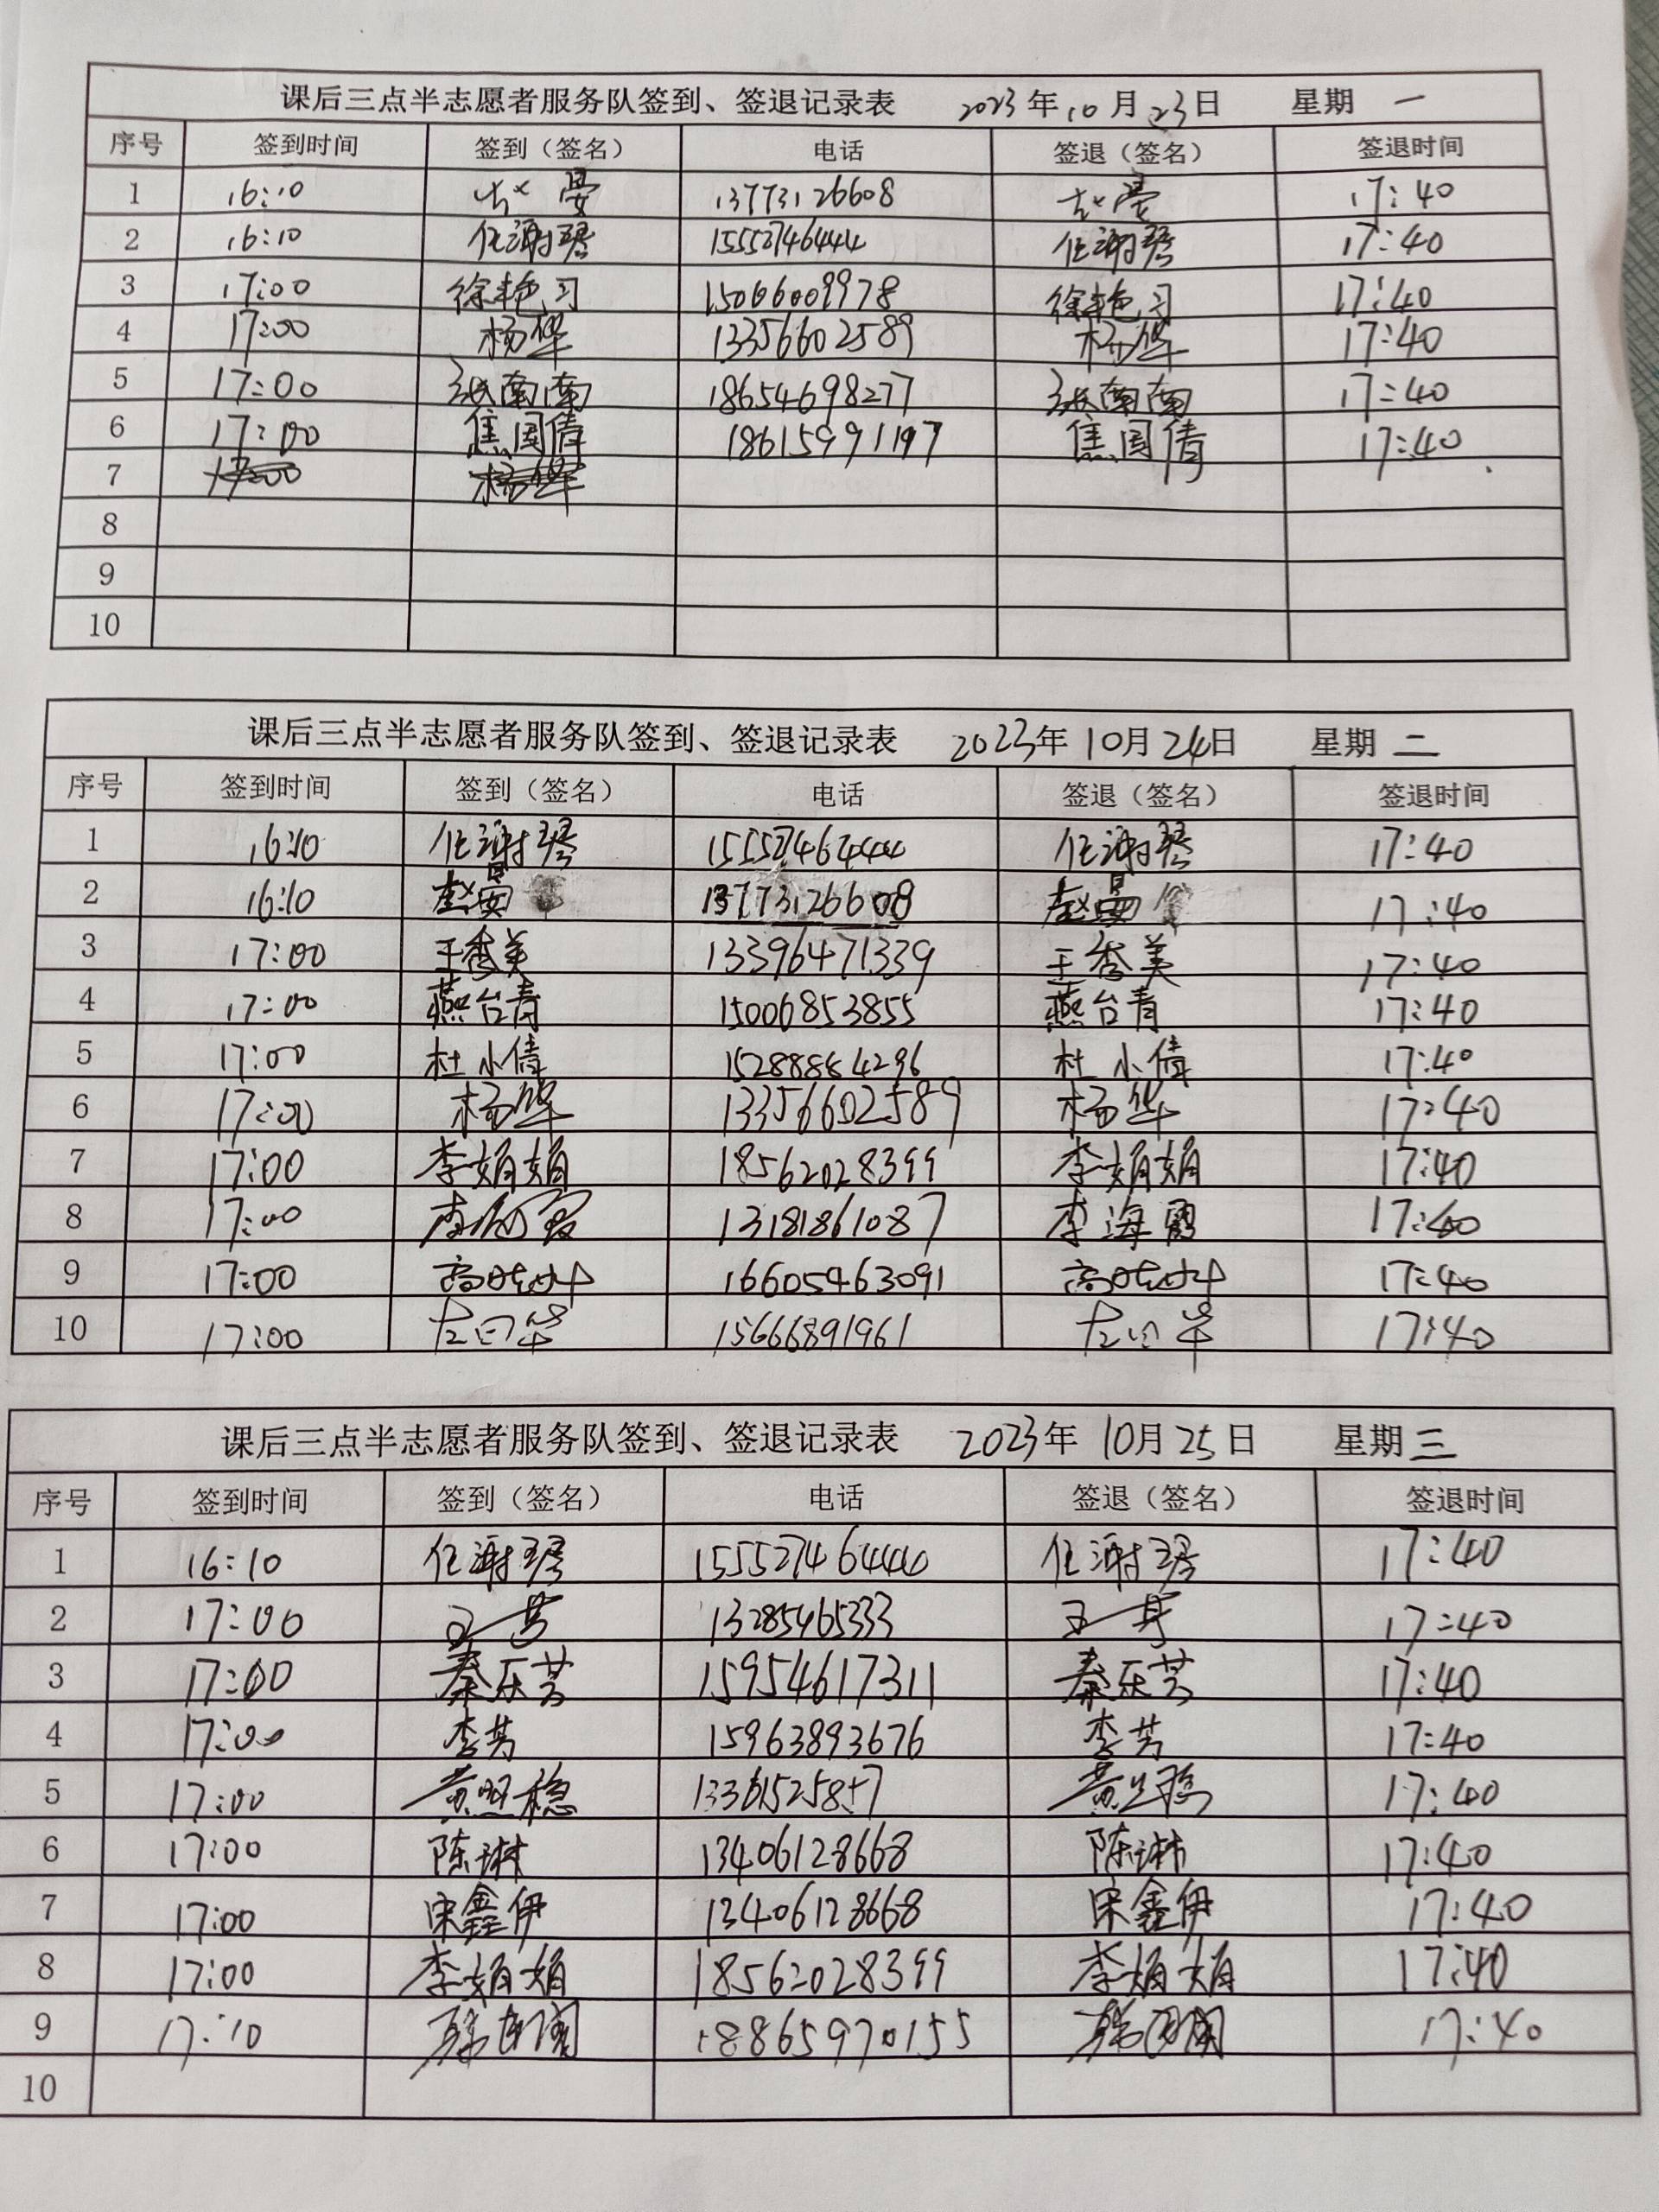 课后三点半志愿者服务队签到、签退记录表 2023年10月23日 星期 一
序号 签到时间 签到（签名） 电话 签退（签名） 签退时间
1 16:10 赵晏 13773126608 赵晏 17:40
2 16:10 任谢琴 15552746444 任谢琴 17:40
3 17:00 徐艳习 15066009978 徐艳习 17:40
4 17:00 杨华 13356602589 杨华 17:40
5 17:00 张南南 18654698277 张南南 17:40
6 17:00 焦国倩 18615991197 焦国倩 17:40
7 17:00 杨华
8
9
10
课后三点半志愿者服务队签到、签退记录表 2023年10月24日 星期 二
序号 签到时间 签到（签名） 电话 签退（签名） 签退时间
1 16:10 任谢琴 任谢琴 17:40
2 16:10 赵晏 13773126608 赵晏 17:40
3 17:00 王秀美 13396471339 王秀美 17:40
4 17:00 燕台青 15006853855 燕台青 17:40
5 17:00 杜小倩 杜小倩 17:40
6 17:00 杨华 13356602589 杨华 17:40
7 17:00 李娟娟 18562028399 李娟娟 17:40
8 17:00 李海霞 13181861087 李海霞 17:40
9 17:00 16605463091 17:40
10 17:00 15666891961 17:40
课后三点半志愿者服务队签到、签退记录表 2023年10月25日 星期 三
序号 签到时间 签到（签名） 电话 签退（签名） 签退时间
1 16:10 任谢琴 任谢琴 17:40
2 17:00 13285465333 17:40
3 17:00 秦乐芳 15954617311 秦乐芳 17:40
4 17:00 李芳 15963893676 李芳 17:40
5 17:00 13361525857 17:40
6 17:00 陈琳 13406128668 陈琳 17:40
7 17:00 宋鑫伊 13406128668 宋鑫伊 17:40
8 17:00 李娟娟 18562028399 李娟娟 17:40
9 17:10 18865970155 17:40
10